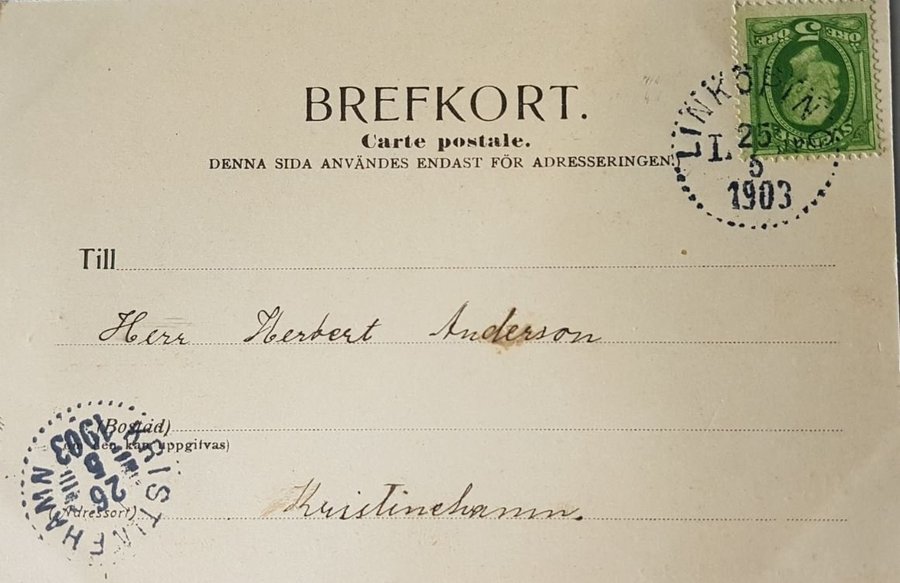 5 ÖRE ÖRE
BREFKORT.
Carte postale.
DENNA SIDA ANVÄNDES ENDAST FÖR ADRESSERINGEN.
LINKÖPING
L. 25
5
1903
Till
Herr Herbert Anderson
(Bostad)
(om den kan uppgifvas)
KRISTINEHAMN
26
5
1903
(Adressort)
Kristinehamn.